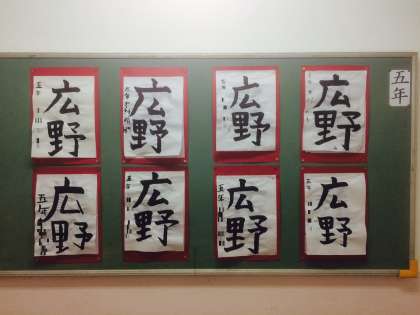 五年
広野
五年
広野
五年
広野
五年
広野
五年
広野
五年
広野
五年
広野
五年
広野
五年